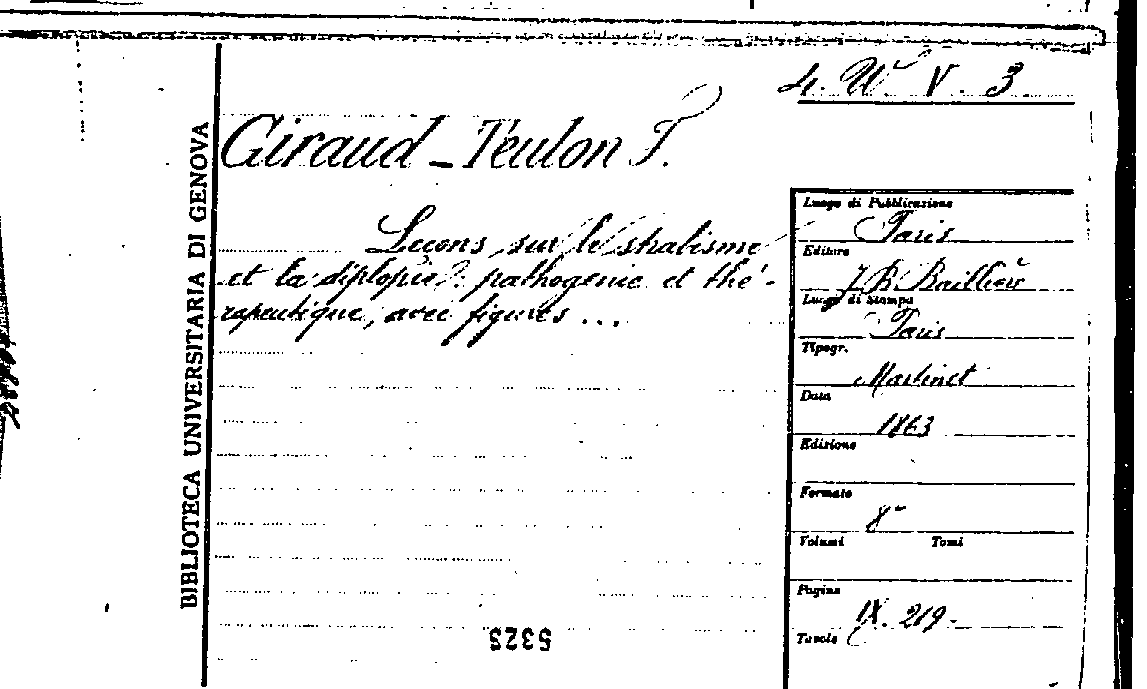 4. W. V. 3.
BIBLIOTECA UNIVERSITARIA DI GENOVA
Giraud-Teulon F.
Leçons sur le strabisme
et la diplopie: pathogénie et thé-
rapeutique, avec figures ...
Luogo di Pubblicazione
Paris
Editore
J. B. Baillière
Luogo di Stampa
Paris
Tipogr.
Martinet
Data
1863
Edizione
Formato
8°
Volumi Tomi
Pagine
IX. 219.
Tavole
5325